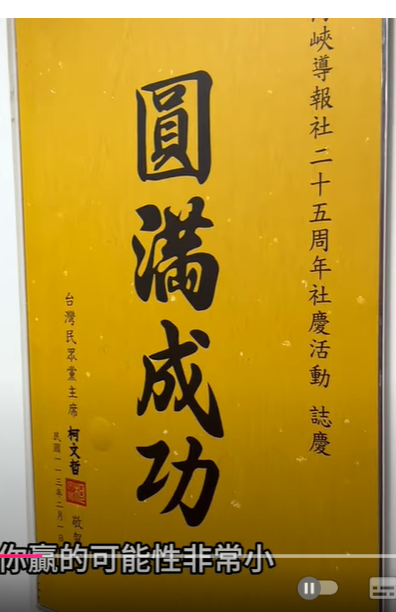 峽導報社二十五周年社慶活動 誌慶
圓滿成功
台灣民眾黨主席 柯文哲 敬賀
民國一一三年二月一日
你贏的可能性非常小